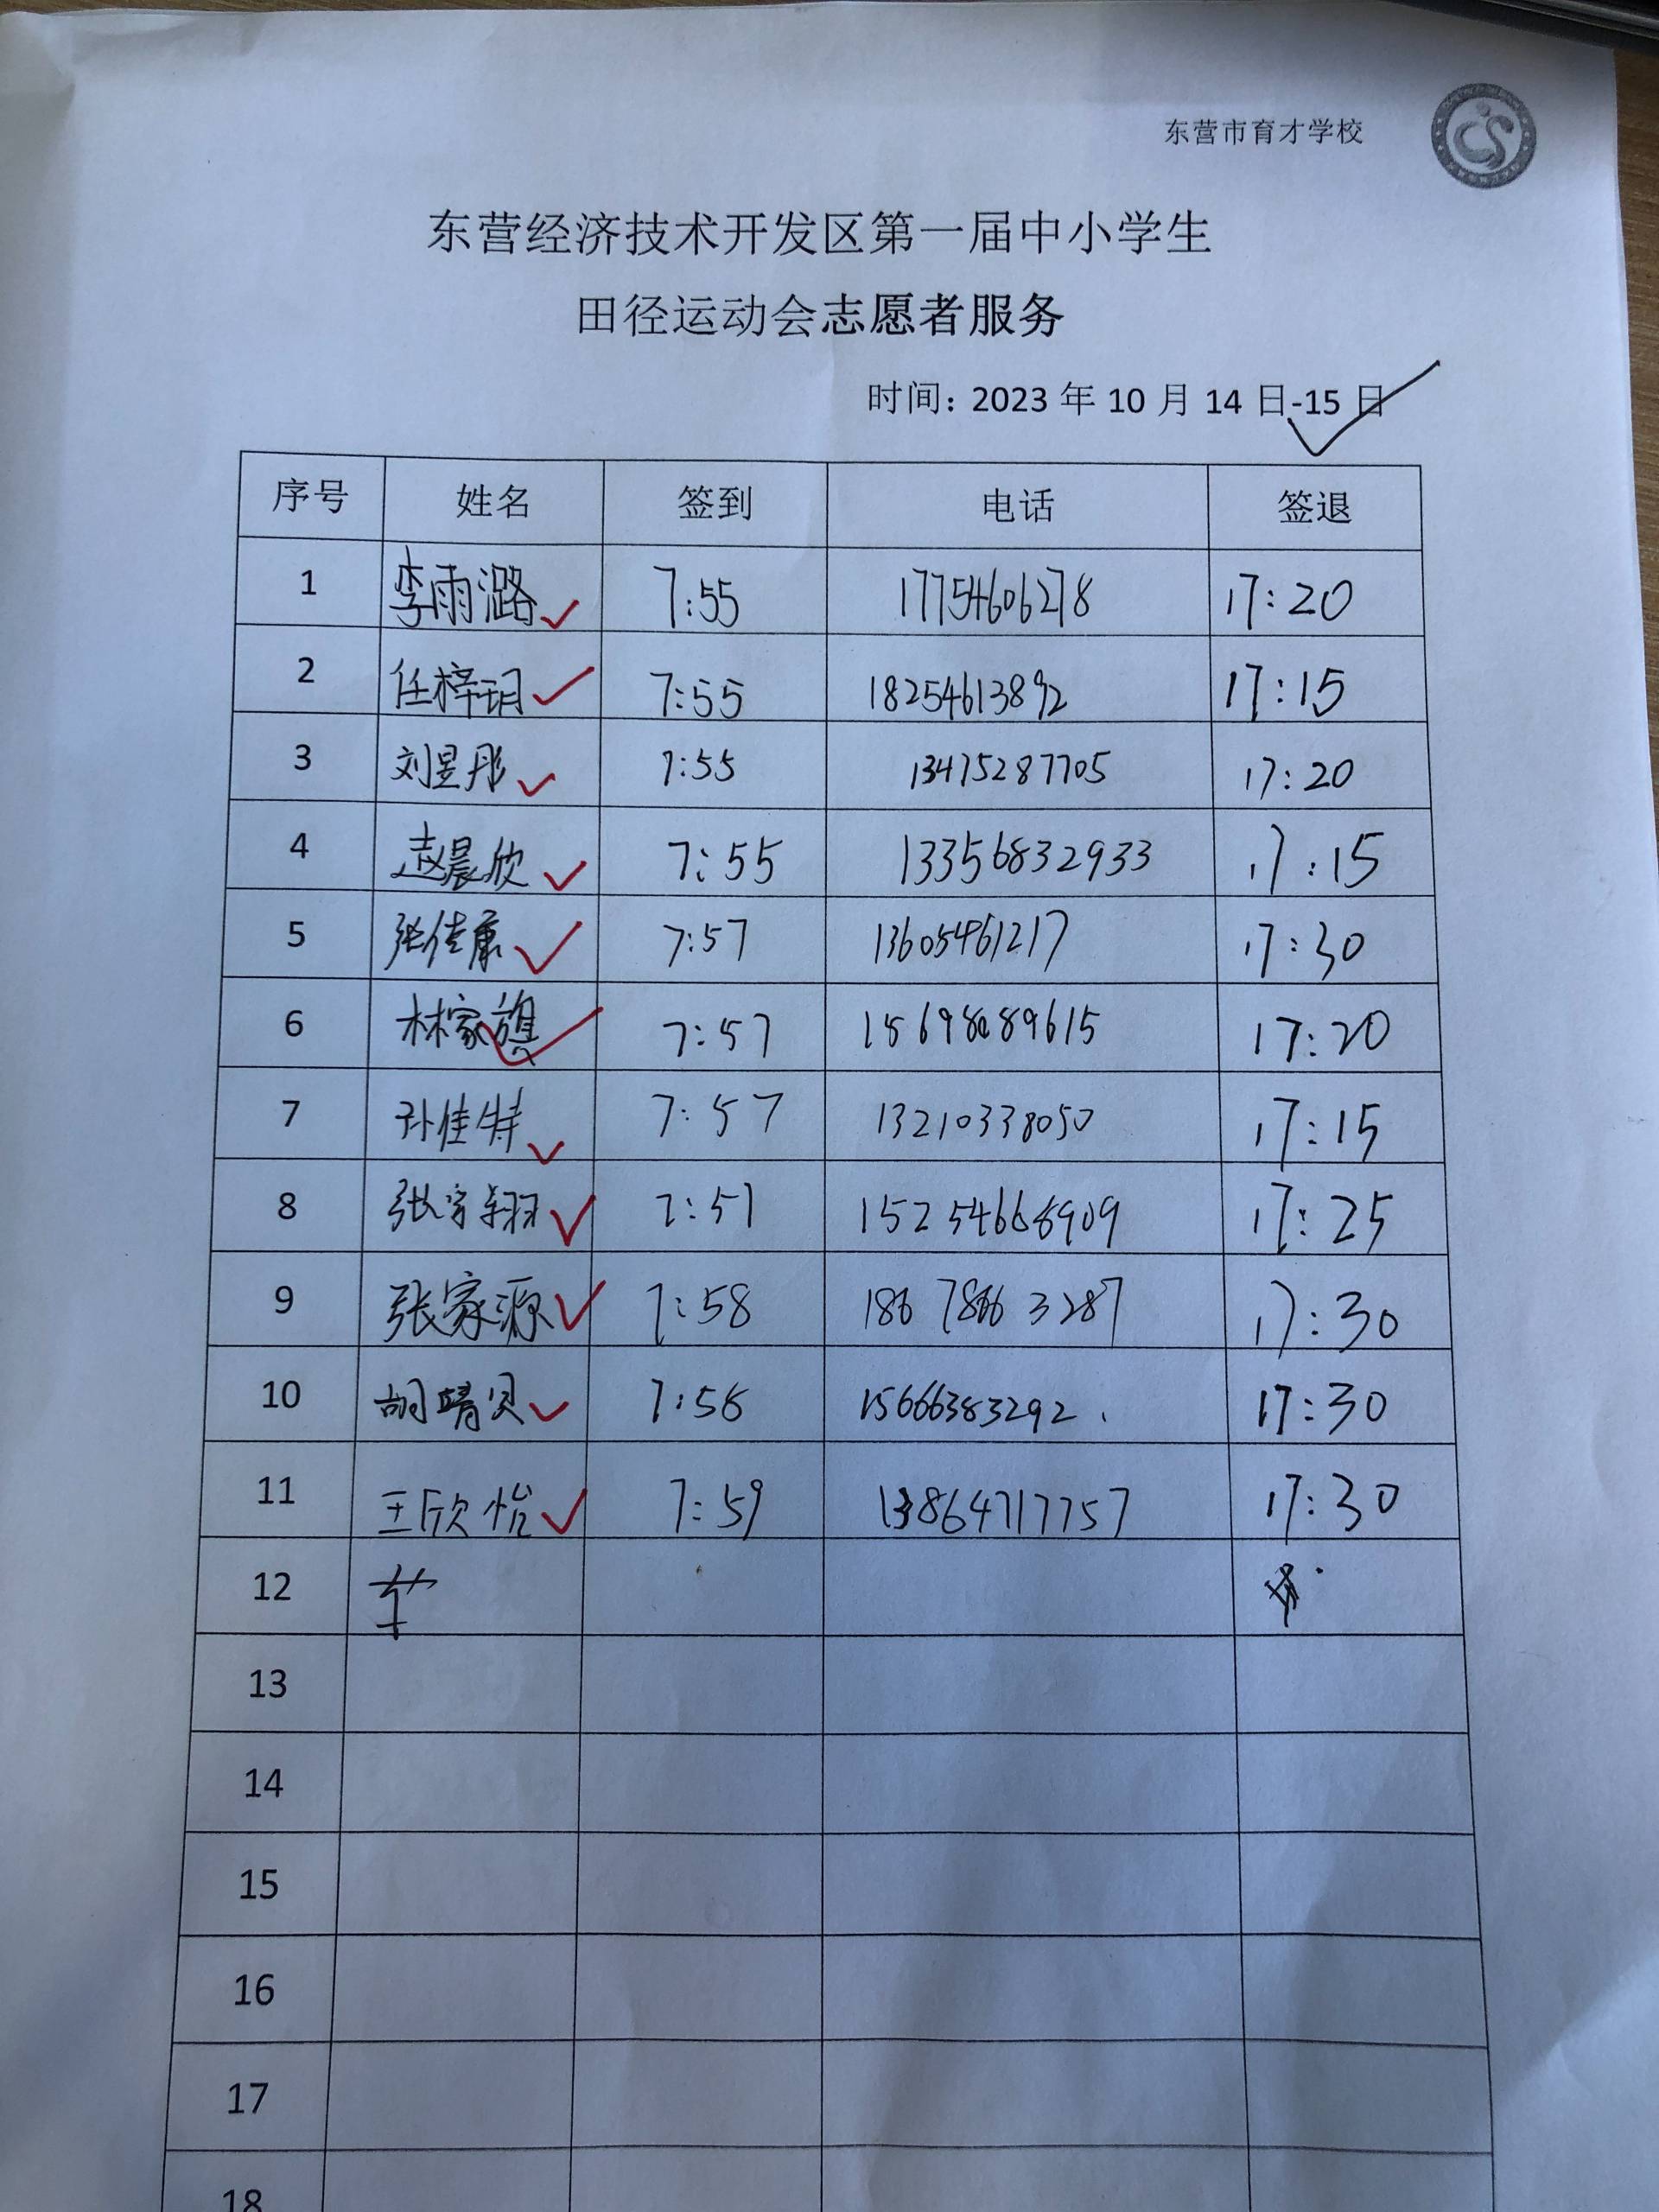 东营市育才学校
东营经济技术开发区第一届中小学生
田径运动会志愿者服务
时间：2023 年 10 月 14 日-15 日
序号 姓名 签到 电话 签退
1 李雨潞 7:55 17754606278 17:20
2 任梓玥 7:55 18254613892 17:15
3 刘昱彤 7:55 13475287705 17:20
4 赵晨欣 7:55 13356832933 17:15
5 张佳康 7:57 13605461217 17:30
6 林家旗 7:57 17:20
7 孙佳特 7:57 13210338050 17:15
8 张宇翔 7:57 15254668909 17:25
9 张家源 7:58 18678663287 17:30
10 胡晴贝 7:58 15666383292 17:30
11 王欣怡 7:59 13864717757 17:30
12
13
14
15
16
17
18